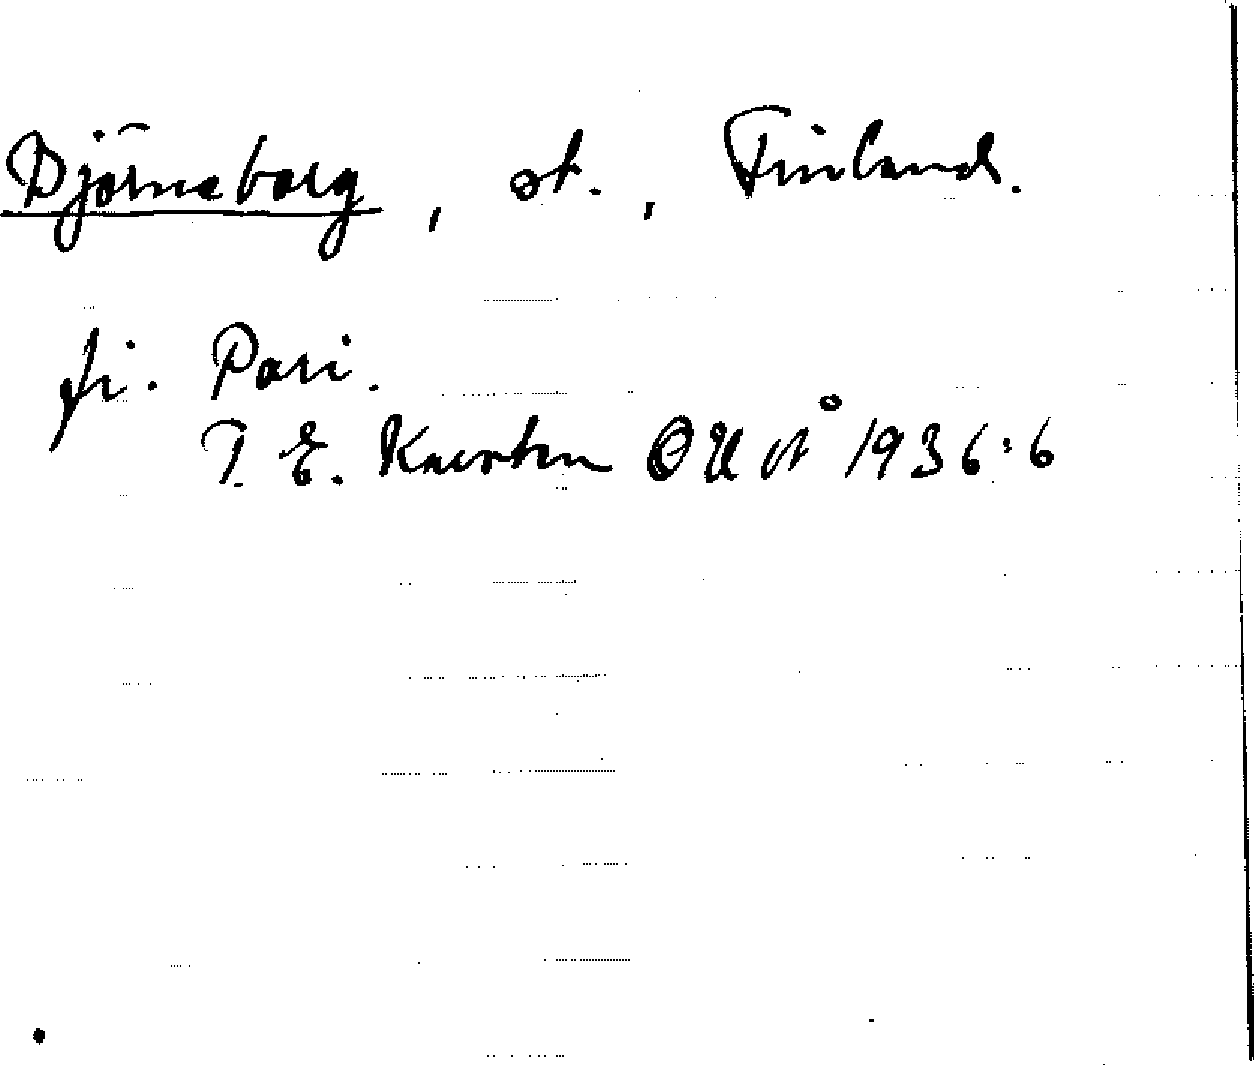 Björneborg, st., Finland.
fi. Pori.
T. E. Karsten OUÅ 1936:6